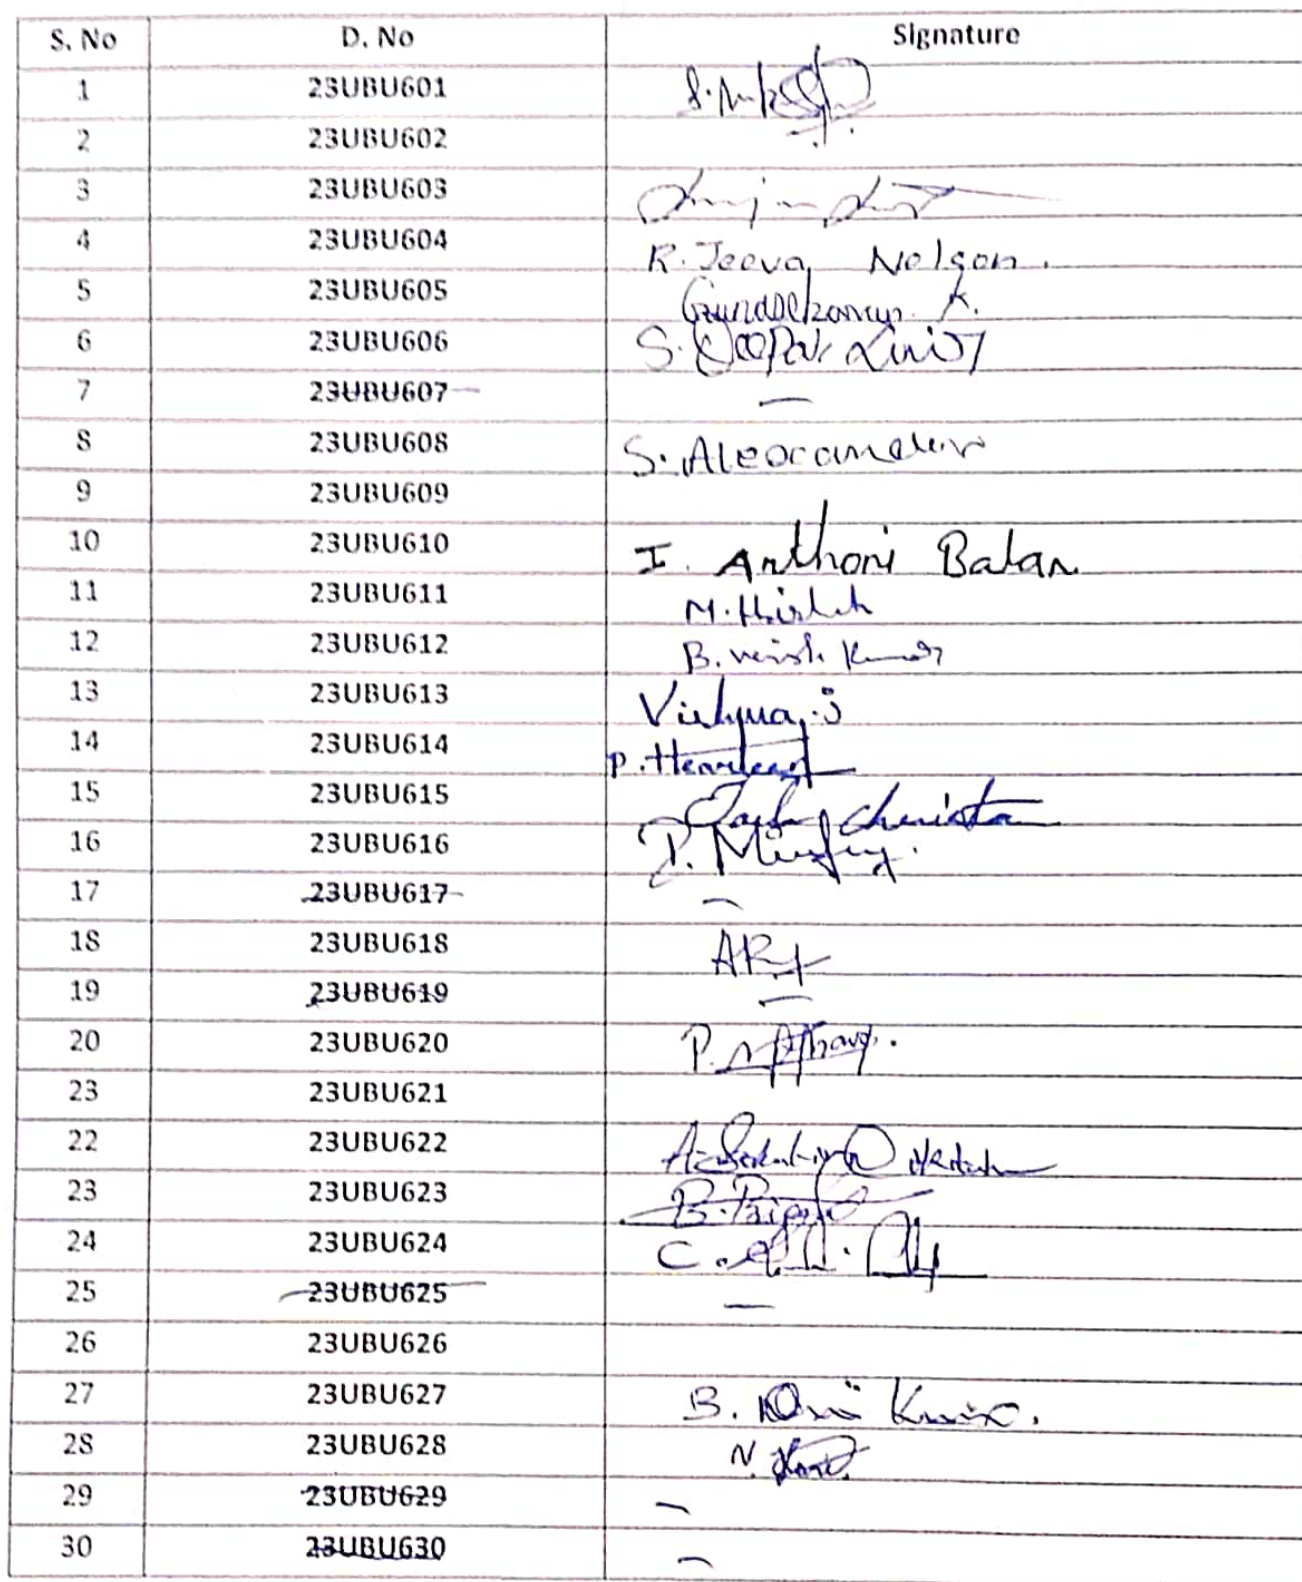 S. No D. No Signature
1 23UBU601
2 23UBU602
3 23UBU603
4 23UBU604 R. Jeeva Nelson.
5 23UBU605 Gunasekaran. K.
6 23UBU606 S.
7 23UBU607 —
8 23UBU608 S. Alexander
9 23UBU609
10 23UBU610 I. Anthoni Balan
11 23UBU611 M.
12 23UBU612 B. Kumar
13 23UBU613
14 23UBU614 P.
15 23UBU615
16 23UBU616
17 23UBU617 —
18 23UBU618
19 23UBU619 —
20 23UBU620 P.
23 23UBU621
22 23UBU622 A.
23 23UBU623 B.
24 23UBU624 C.
25 23UBU625 —
26 23UBU626
27 23UBU627 B.
28 23UBU628 N.
29 23UBU629 —
30 23UBU630 —